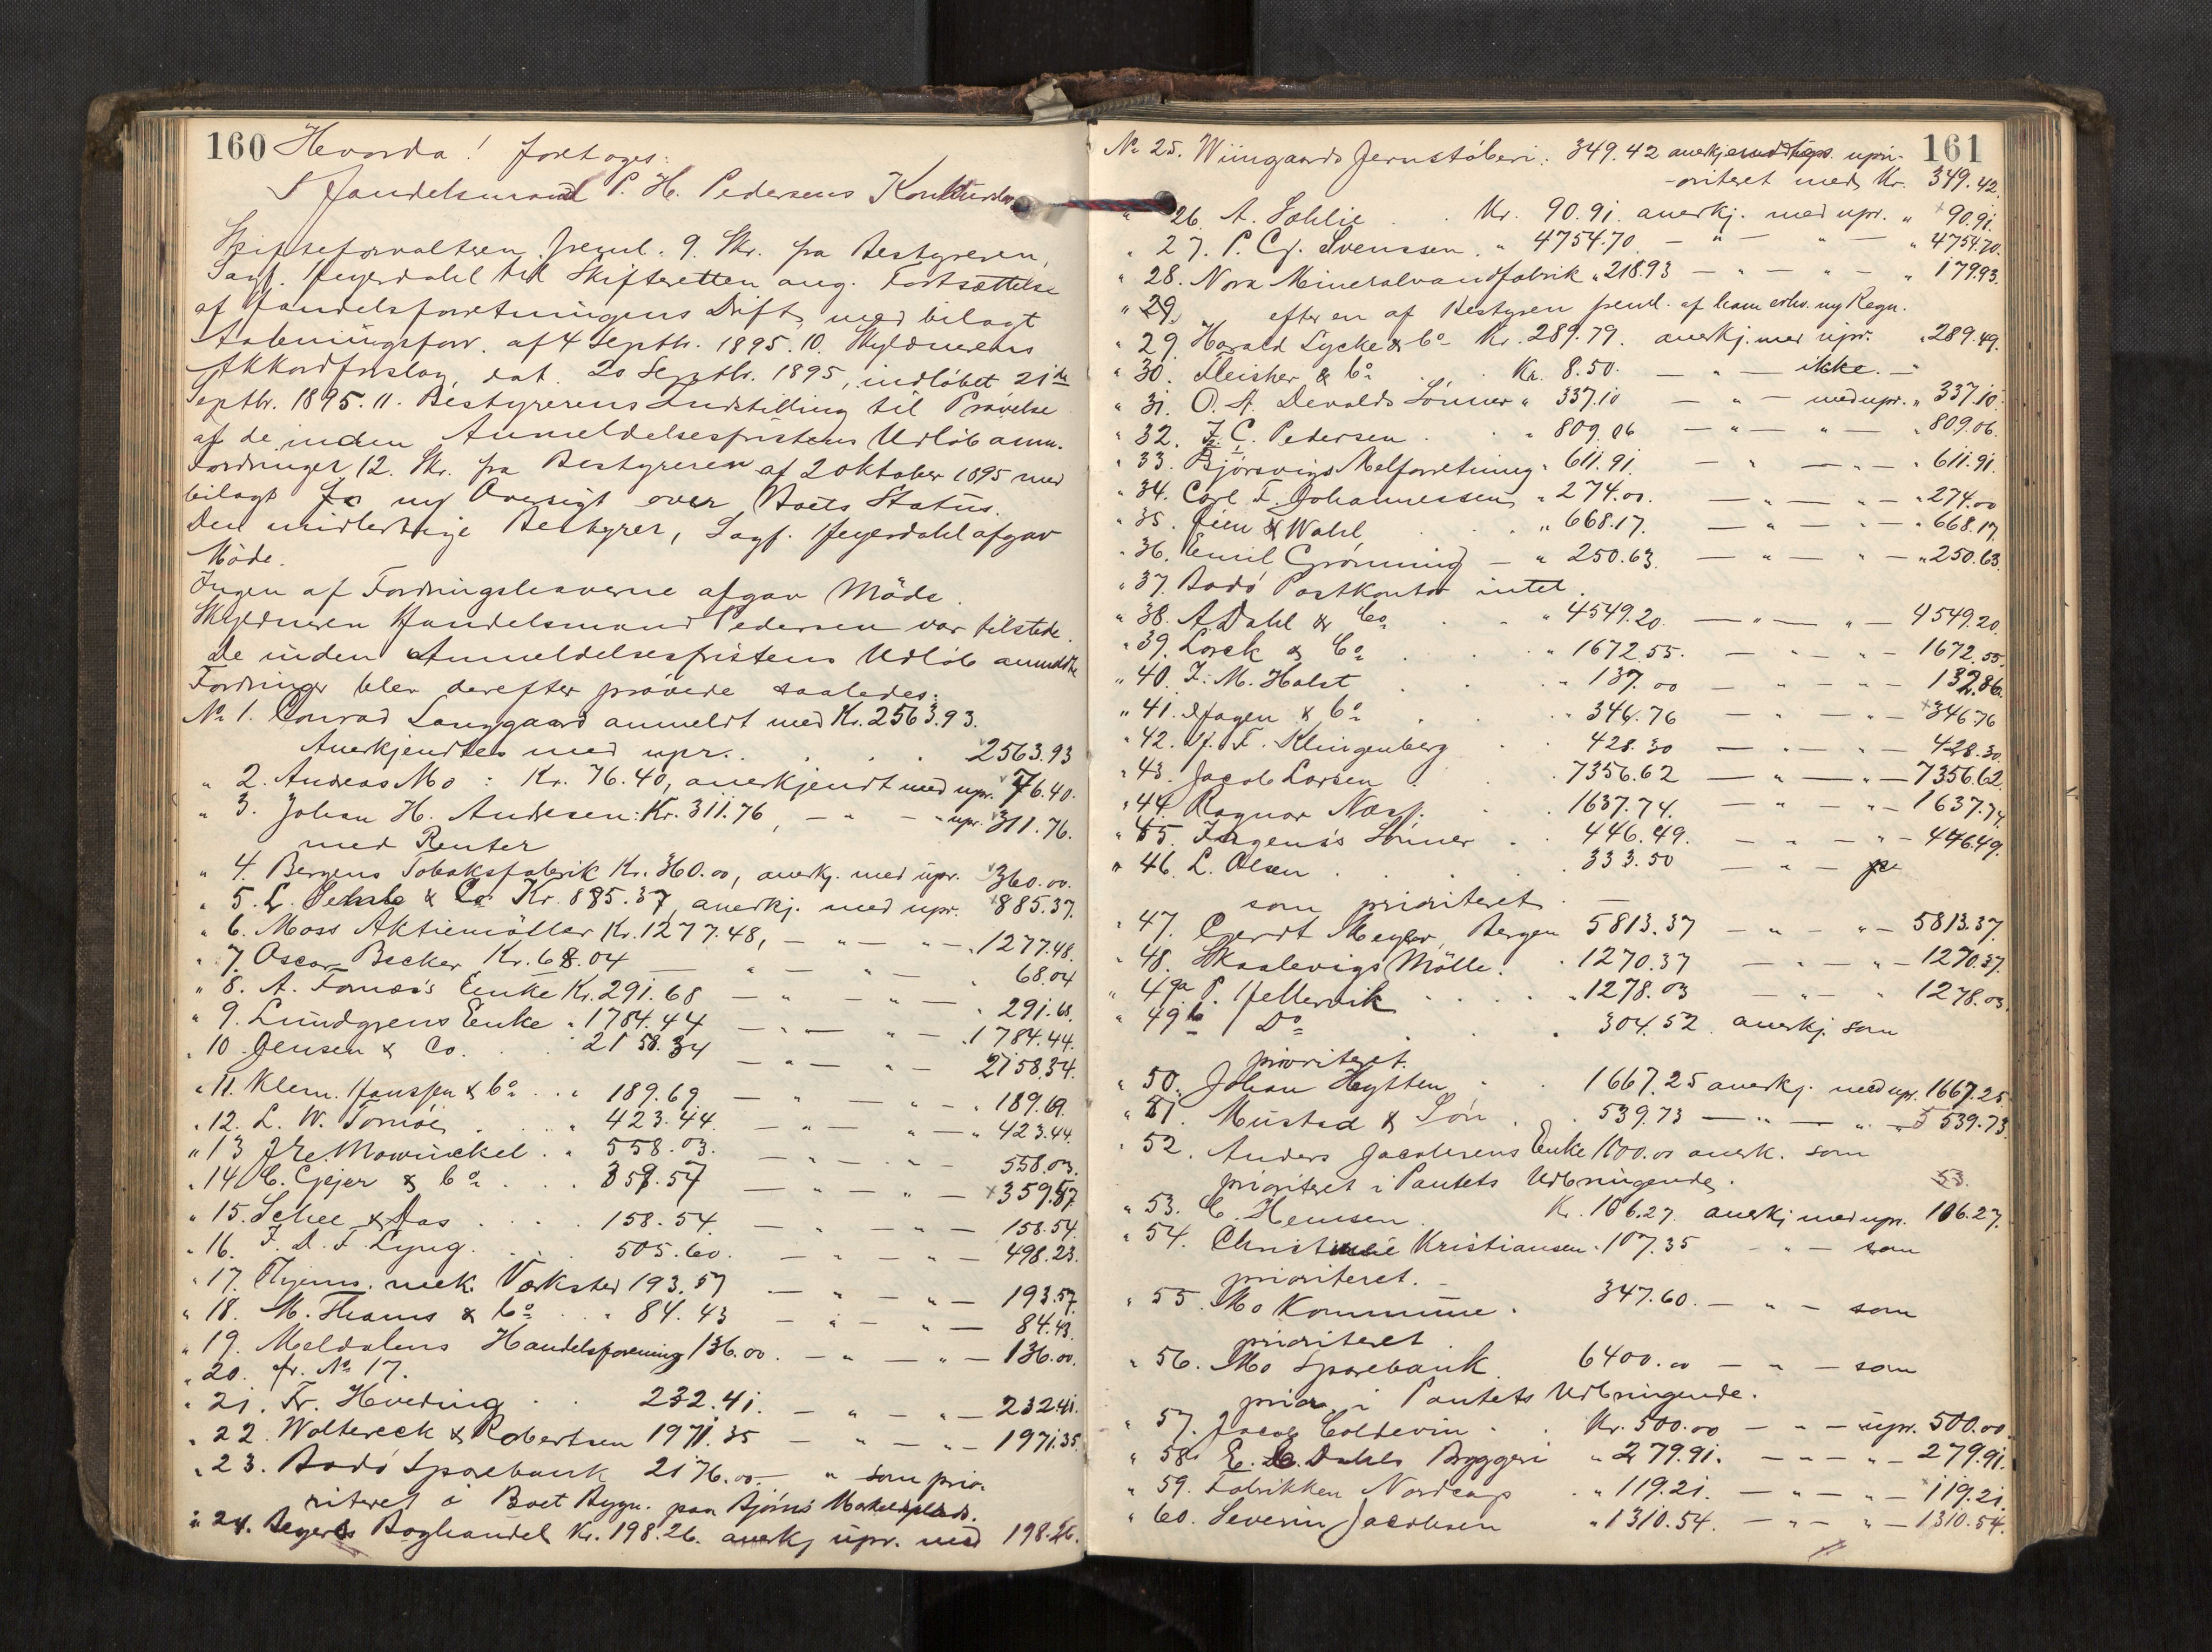 160
Hvorda! foretoges:
I Handelsmand P. H. Pedersens Konkursbo
Skifteforvalteren freml. 9. Skr. fra Bestyreren,
Sagf. Heyerdahl til Skifteretten ang. Fortsættelse
af Handelsforretningens Drift, med bilagt
af 4 Septbr. 1895. 10. Skyldnerens
Akkordforslag, dat. 20 Septbr. 1895, indløbet 21de
Septbr. 1895. 11. Bestyrerens Indstilling til Prøvelse
af de inden Anmeldelsesfristens Udløb anm.
Fordringer, 12. Skr. fra Bestyreren af 2 Oktober 1895 med
bilagt ny Oversigt over Boets Status.
Den midlertidige Bestyrer, Sagf. Heyerdahl afgav
Møde.
Ingen af Fordringshaverne afgav Møde.
Skyldneren Handelsmand Pedersen var tilstede.
De inden Anmeldelsesfristens Udløb anmeldte
Fordringer blev derefter prøvede saaledes:
No 1. Conrad Langgaard anmeldt med Kr. 2563.93.
Anerkjendtes med upr. . . . 2563.93
" 2. Andreas Mo : Kr. 76.40, anerkjendt med upr. 76.40.
" 3. Johan H. Andresen: Kr. 311.76, — " — upr. 311.76.
med Renter
" 4. Bergens Tobaksfabrik Kr. 360.00, anerkj. med upr. 360.00.
" 5. L. & Co Kr. 885.37, anerkj. med upr. 885.37.
" 6. Moss Aktiemøller Kr. 1277.48, — " — " — 1277.48.
" 7. Oscar Becker Kr. 68.04 — " — " — 68.04
" 8. A. Fornæs's Enke Kr. 291.68 — " — " — 291.68.
" 9. Lundgrens Enke " 1784.44 — " — " — 1784.44.
" 10. Jensen & Co. . . 2158.34 — " — " — 2158.34.
" 11. Klem. Hanssen & Co . . " 189.69 — " — " — 189.69.
" 12. L. W. Tornöe . . . " 423.44. — " — " — 423.44.
" 13 J. E. Mowinckel . " 558.03. — " — " — 558.03.
" 14 C. Geijer & Co . . 359.57 — " — " — 359.57
" 15. Schee & Aas . . . . 158.54. — " — " — 158.54.
" 16. F. D. F. Lyng . . . 505.60. — " — " — 498.23.
" 17. Thjems mek. Værksted 193.57 — " — " — 193.57.
" 18. M. Thams & Co . . " 84.43 — " — " — 84.43.
" 19. Meldalens Handelsforening 136.00. — " — " — 136.00.
" 20. fr. No 17.
" 21. Fr. Hveding . . 232.41. — " — " — 232.41.
" 22. Woltereck & Robertson 1971.35 — " — " — 1971.35.
" 23. Bodø Sparebank 2176.00 — " som prio-
riteret i Boet Bygn. paa Bjørns Markedsplads.
" 24. Beyers Boghandel Kr. 198.26. anerkj upr. med 198.26.
161
No 25. Wiingaards Jernstøberi: 349.42 anerkjendtes upri-
-oriteret med Kr. 349.42.
" 26. A. Sohlie . . Kr. 90.91. anerkj. med upr. " 90.91.
" 27. P. Cj. Svenssen. " 4754.70. — " — " — " 4754.70.
" 28. Nora Mineralvandfabrik " 218.93 — " — " — " 179.93.
" 29. efter en af Bestyren freml. af ham erhv. ny Regn.
" 29. Harald Lycke & Co Kr. 289.79. anerkj. med upr. " 289.49.
" 30. Pleisher & Co . . Kr. 8.50. — " — ikke. —
" 31. O. A. Devolds Sønner " 337.10 — " — med upr. " 337.10.
" 32. F. C. Pedersen . . " 809.06 — " — " — " 809.06.
" 33. Bjørsvigs Melforretning " 611.91. — " — " — " 611.91.
" 34. Carl F. Johannessen " 274.00. — " — " — " 274.00
" 35. Jien & Wahl . . " 668.17. — " — " — " 668.17.
" 36. Emil Grønning — " 250.63. — " — " — " 250.63.
" 37. Bodø Postkontor intet.
" 38. A Dahl & Co . . " 4549.20. — " — " — 4549.20.
" 39. Lorck & Co . . " 1672.55. — " — " — 1672.55.
" 40. F. M. Holst . . " 137.00 — " — " — 132.86.
" 41. Hagen & Co . . " 346.76 — " — " — 346.76
" 42. H. F. Klingenberg . . 428.30 — " — " — 428.30.
" 43. Jacob Larsen . . 7356.62 — " — " — 7356.62.
" 44. Ragnar Næss. . . 1637.74. — " — " — 1637.74.
" 45. Jürgens's Sønner . 446.49. — " — " — 446.49.
" 46. L. Olsen . . . 333.50 — " —
som prioriteret. —
" 47. Gerdt Meyer, Bergen 5813.37 — " — " — 5813.37.
" 48. Skaalevigs Mølle. . 1270.37 — " — " — 1270.37.
" 49a P. Hellervik . . . " 1278.03 — " — " 1278.03.
" 49b Do . . " 304.52. anerkj. som
prioriteret.
" 50. Johan Hytten . . 1667.25 anerkj. med upr. 1667.25
" 51. Mustad & Søn . . 539.73 — " — " — 539.73.
" 52. Anders Jacobsens Enke 1600.00 anerk. som
prioriteret i Pantets Udbringende. 53.
" 53. C. Hemsen . Kr. 106.27. anerkj med upr. 106.27.
" 54. Kristiansen. 107.35 — " — som
prioriteret. —
" 55. Mo Kommune. 347.60. — " — som
prioriteret
" 56. Mo Sparebank 6400.00 — " — som
prior. i Pantets Udbringende.
" 57. Jacob Coldevin . . Kr. 500.00 — " — upr. 500.00.
" 58. E. C. Dahls Bryggeri " 279.91. — " — " — 279.91.
" 59. Fabrikken Nordcap . " 119.21. — " — " — 119.21.
" 60. Severin Jacobsen " 1310.54. — " — " — 1310.54.